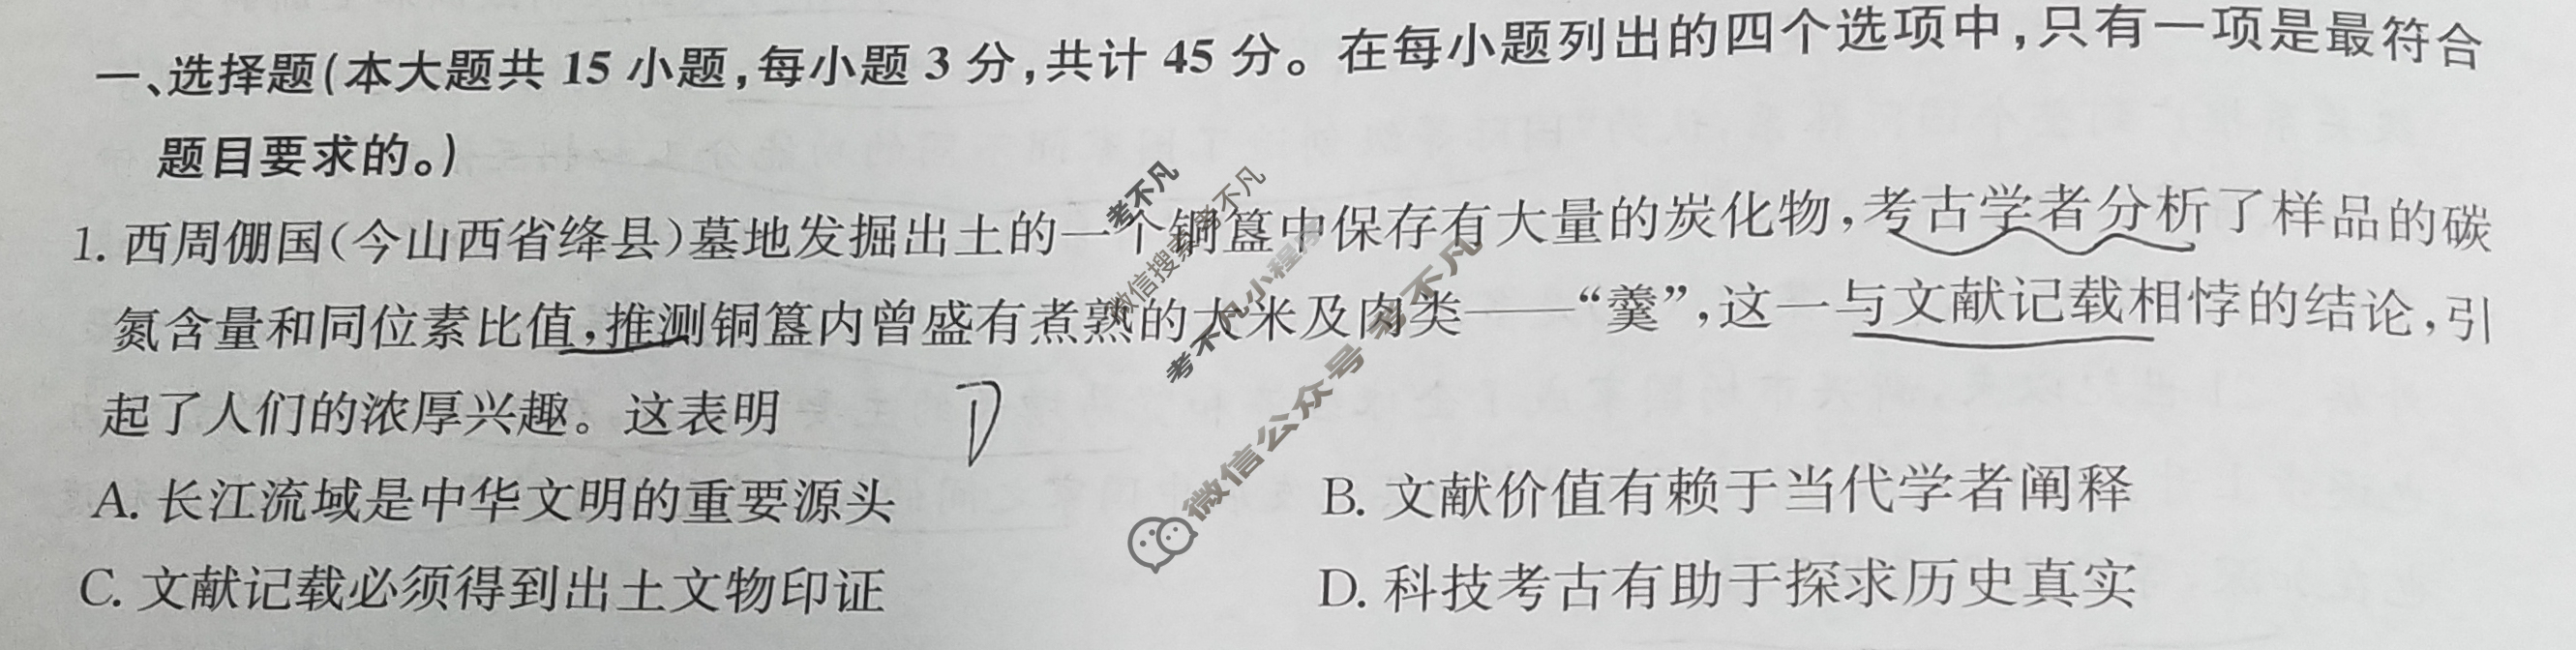 一、选择题(本大题共 15 小题,每小题 3 分,共计 45 分。在每小题列出的四个选项中,只有一项是最符合
题目要求的。)
1. 西周倗国(今山西省绛县)墓地发掘出土的一个铜簋中保存有大量的炭化物,考古学者分析了样品的碳
氮含量和同位素比值,推测铜簋内曾盛有煮熟的大米及肉类——“羹”,这一与文献记载相悖的结论,引
起了人们的浓厚兴趣。这表明 D
A. 长江流域是中华文明的重要源头 B. 文献价值有赖于当代学者阐释
C. 文献记载必须得到出土文物印证 D. 科技考古有助于探求历史真实
考不凡
微信搜索 考不凡
考不凡小程序
微信公众号 考不凡